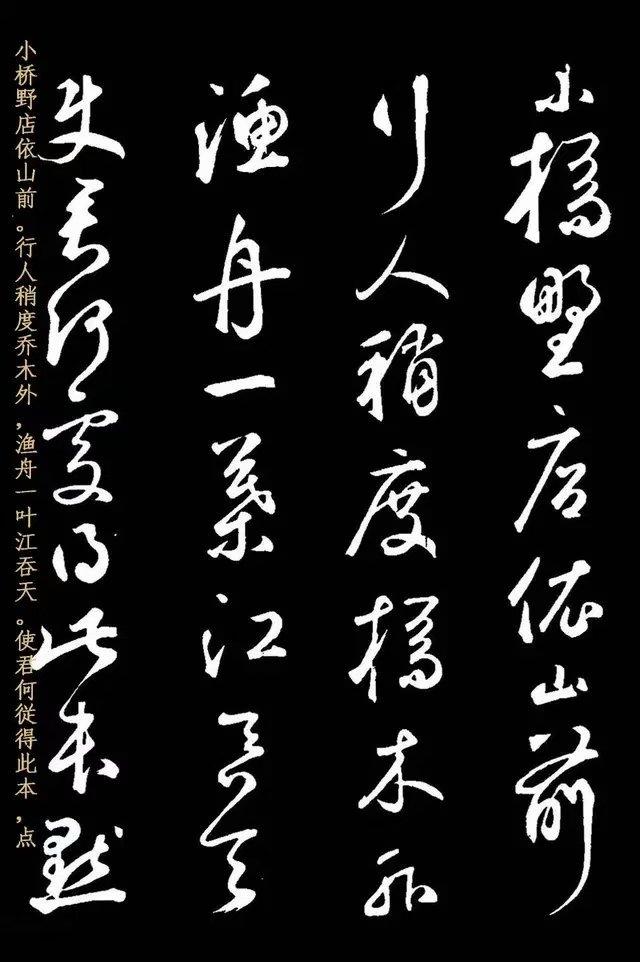 小橋野店依山前
行人稍度橋木外
漁舟一葉江吞天
使君何處得此本點
小桥野店依山前。行人稍度乔木外,渔舟一叶江吞天。使君何従得此本,点